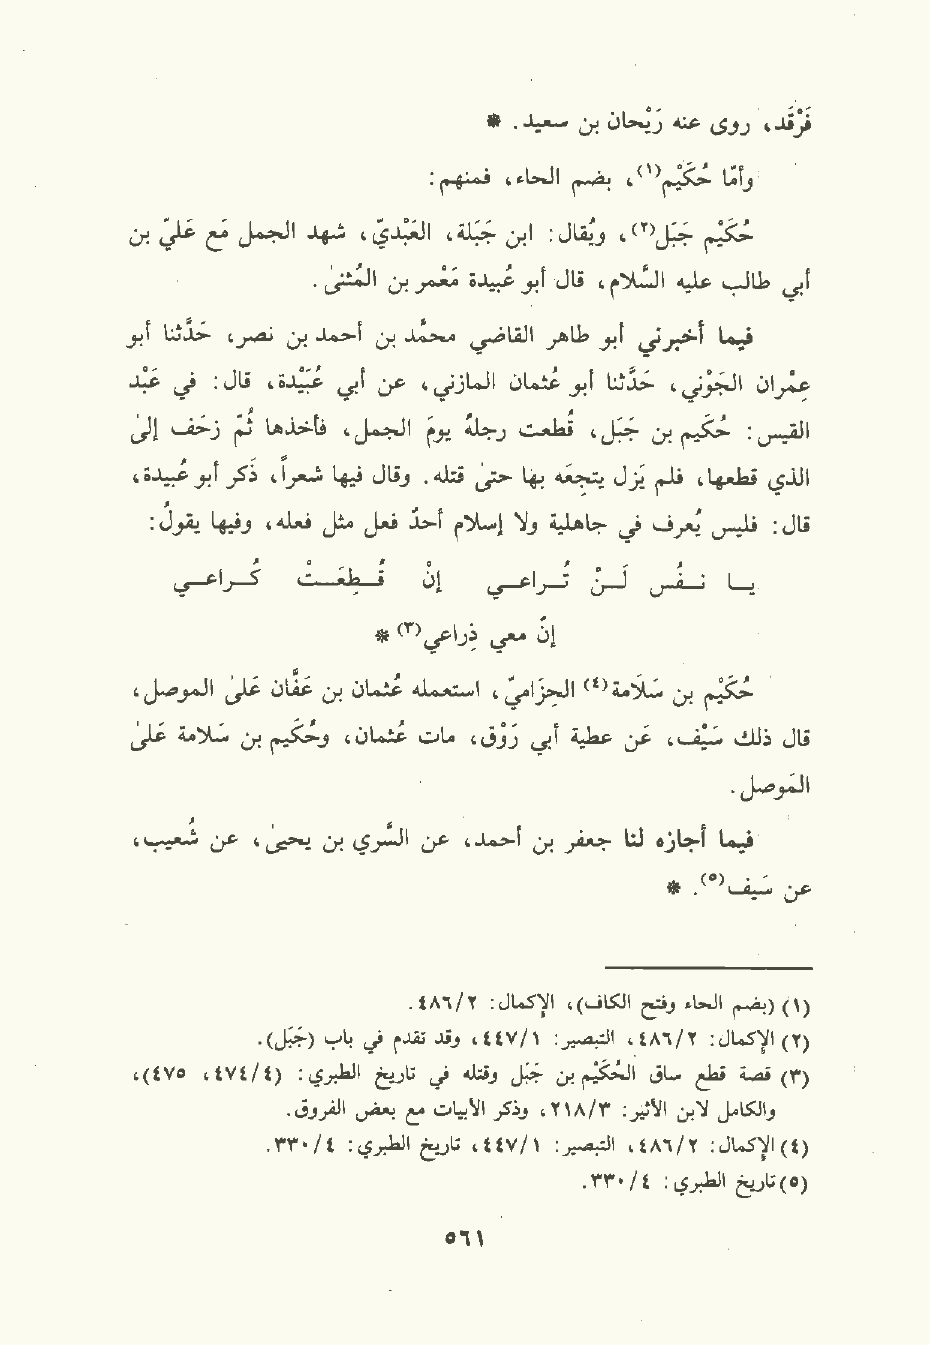 فَرْقَد، روى عنه رَيْحان بن سعيد. *
وأمّا حُكَيْم(١)، بضم الحاء، فمنهم:
حُكَيْم جَبَل(٢)، ويُقال: ابن جَبَلة، العَبْديّ، شهد الجمل مَع عَليّ بن
أبي طالب عليه السَّلام، قال أبو عُبيدة مَعْمر بن المُثنىٰ.
فيما أخبرني أبو طاهر القاضي محمَّد بن أحمد بن نصر، حَدَّثنا أبو
عِمْران الجَوْني، حَدَّثنا أبو عُثمان المازني، عن أبي عُبَيْدة، قال: في عَبْد
القيس: حُكَيم بن جَبَل، قُطعت رجلهُ يومَ الجمل، فأخذها ثُمَّ زحَف إلىٰ
الذي قطعها، فلم يَزل يتجِعَه بها حتىٰ قتله. وقال فيها شعراً، ذَكر أبو عُبيدة،
قال: فليس يُعرف في جاهلية ولا إسلام أحدٌ فعل مثل فعله، وفيها يقولُ:
يـا نـفُـس لَـنْ تُـراعـي إنْ قُـطِعَـتْ كُـراعـي
إنّ معي ذِراعي(٣) *
حُكَيْم بن سَلَامة(٤) الحِزاميّ، استعمله عُثمان بن عَفَّان عَلىٰ الموصل،
قال ذلك سَيْف، عَن عطية أبي رَوْق، مات عُثمان، وحُكَيم بن سَلامة عَلىٰ
المَوصل.
فيما أجازه لنا جعفر بن أحمد، عن السَّري بن يحيىٰ، عن شُعيب،
عن سَيف(٥). *
(١) (بضم الحاء وفتح الكاف)، الإكمال: ٤٨٦/٢.
(٢) الإكمال: ٤٨٦/٢، التبصير: ٤٤٧/١، وقد تقدم في باب (جَبَل).
(٣) قصة قطع ساق الحُكَيم بن جَبَل وقتله في تاريخ الطبري: (٤٧٤/٤، ٤٧٥)،
والكامل لابن الأثير: ٢١٨/٣، وذكر الأبيات مع بعض الفروق.
(٤) الإكمال: ٤٨٦/٢، التبصير: ٤٤٧/١، تاريخ الطبري: ٣٣٠/٤.
(٥) تاريخ الطبري: ٣٣٠/٤.
٥٦١